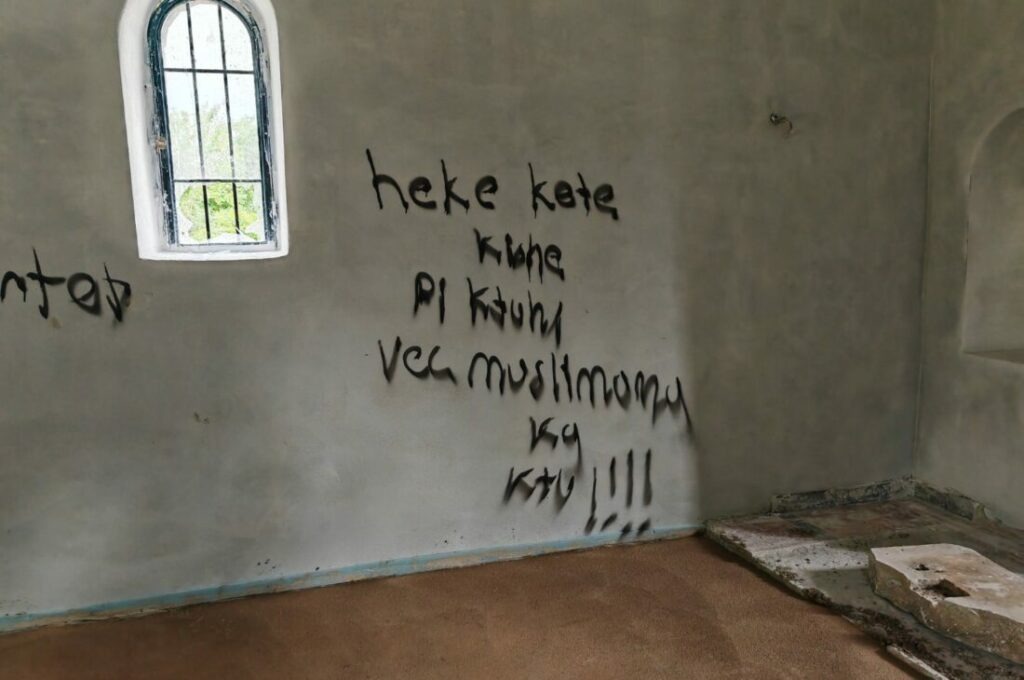 heke kete
kishe
pi ktuhi
vec muslimana
ka
ktu !!!!